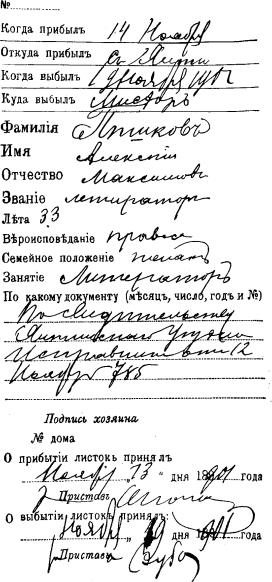 №
Когда прибылъ 14 Ноября
Откуда прибылъ съ Ялты
Когда выбылъ Ноября
Куда выбылъ
Фамилія Пѣшковъ
Имя Алексѣй
Отчество Максимовъ
Званіе литераторъ
Лѣта 33
Вѣроисповѣданіе правос
Семейное положеніе женатъ
Занятіе Литераторъ
По какому документу (мѣсяцъ, число, годъ и №)
По свидѣтельству
Ялтинскаго Уѣздн
Исправника отъ 12
Ноября 785
Подпись хозяина
№ дома
О прибытіи листокъ принялъ
Ноября 13 " дня 1901 года
Приставъ
О выбытіи листокъ принялъ:
Ноября " 19 дня года
Приставъ